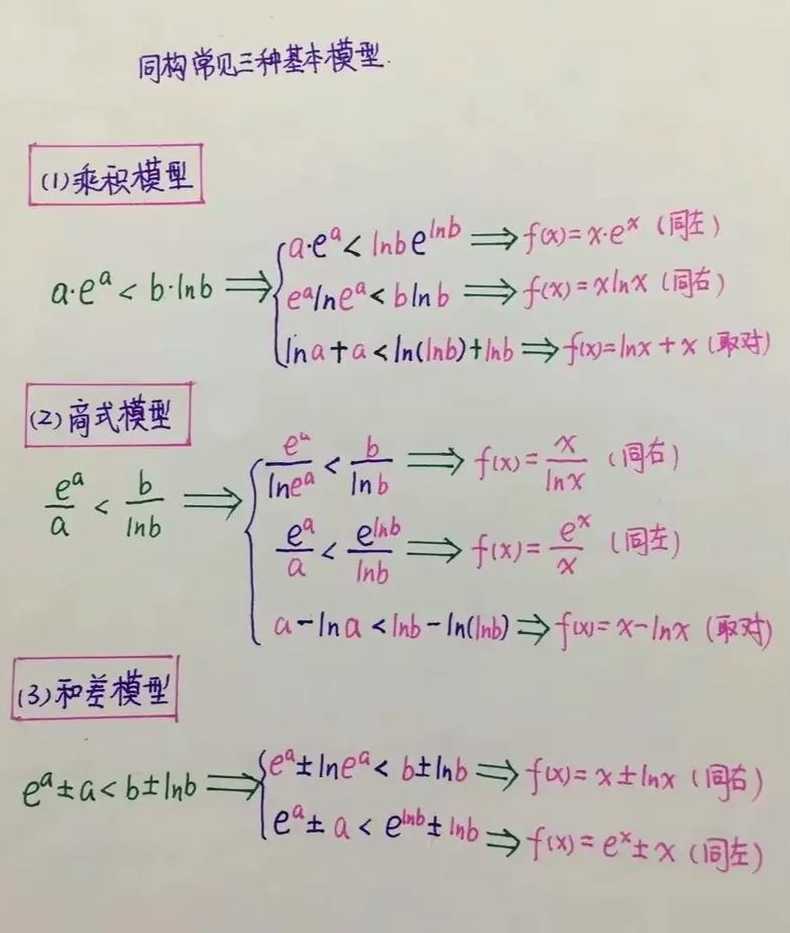 同构常见三种基本模型.
(1)乘积模型
a·e^a < lnb e^{lnb} ⟹ f(x)=x·e^x (同左)
a·e^a < b·lnb ⟹ { e^a lne^a < b lnb ⟹ f(x)=xlnx (同右)
lna+a < ln(lnb)+lnb ⟹ f(x)=lnx+x (取对)
(2)商式模型
e^a/lne^a < b/lnb ⟹ f(x)=x/lnx (同右)
e^a/a < b/lnb ⟹ { e^a/a < e^{lnb}/lnb ⟹ f(x)=e^x/x (同左)
a-lna < lnb-ln(lnb) ⟹ f(x)=x-lnx (取对)
(3)和差模型
e^a±a < b±lnb ⟹ { e^a±lne^a < b±lnb ⟹ f(x)=x±lnx (同右)
e^a±a < e^{lnb}±lnb ⟹ f(x)=e^x±x (同左)